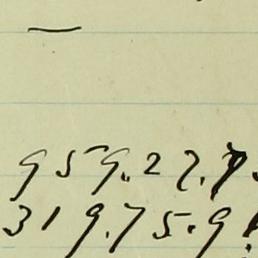 —
959.27.7.
319.75.9